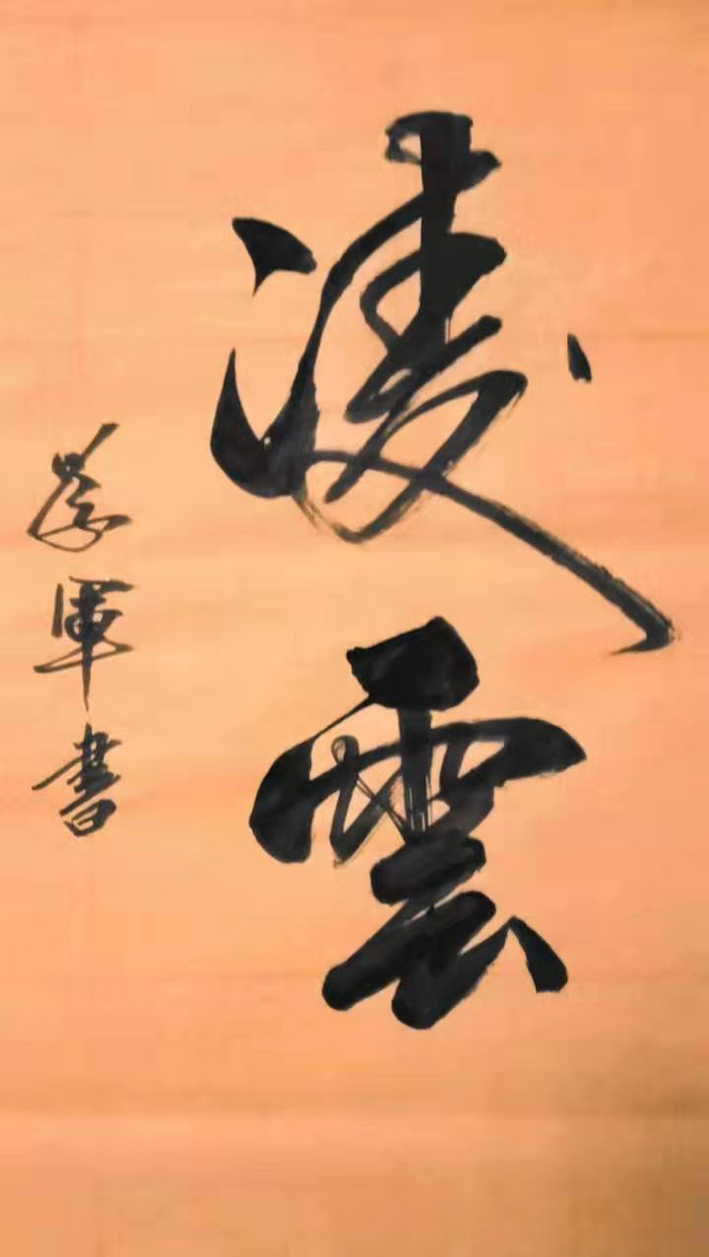 凌雲
軍書